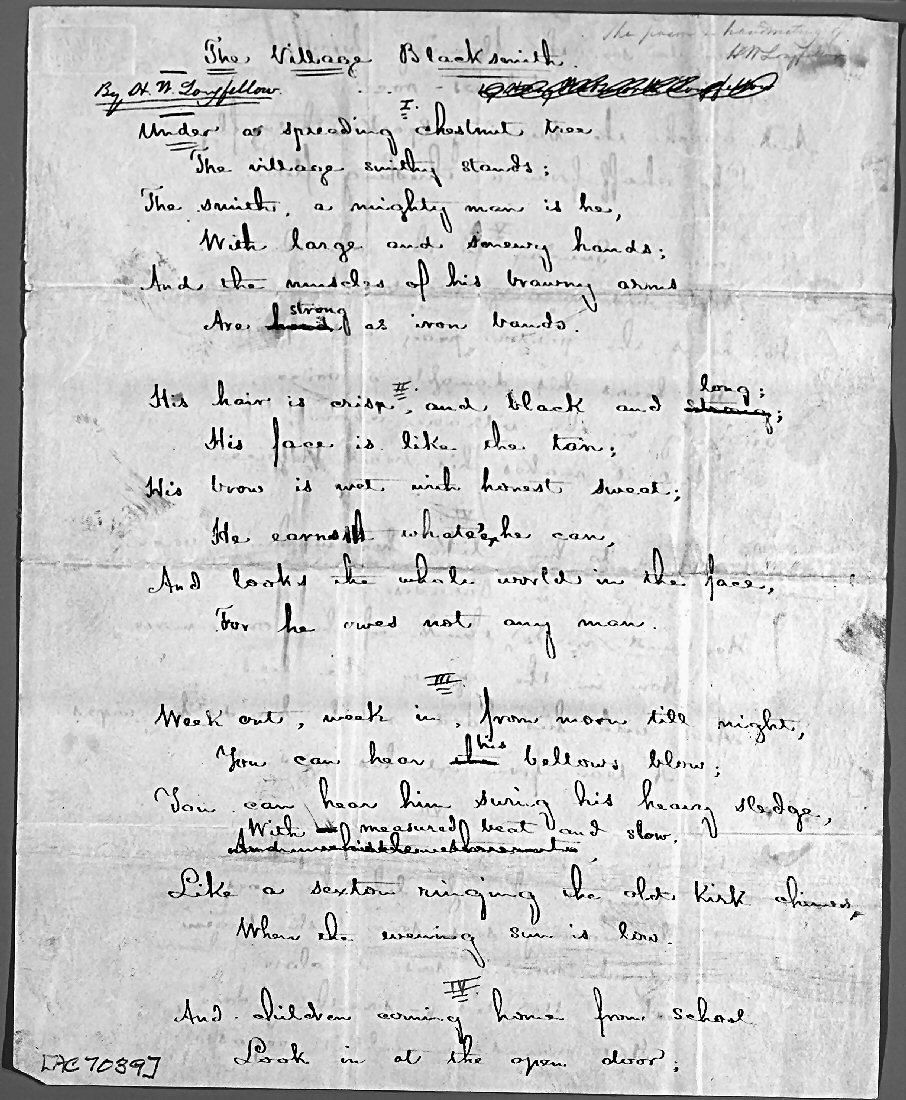 The poem in handwriting of
H W Longfellow
The Village Blacksmith.
By H. W. Longfellow.
I.
Under a spreading chestnut tree
The village smithy stands;
The smith, a mighty man is he,
With large and sinewy hands;
And the muscles of his brawny arms
strong
Are hard as iron bands.
II.
long;
His hair is crisp, and black and strong;
His face is like the tan;
His brow is wet with honest sweat;
He earns whate'er he can,
And looks the whole world in the face,
For he owes not any man.
III.
Week out, week in, from morn till night,
his
You can hear the bellows blow;
You can hear him swing his heavy sledge,
With measured beat and slow,
Like a sexton ringing the old kirk chimes,
When the evening sun is low.
IV.
And children coming home from school
Look in at the open door;
[AC7039]